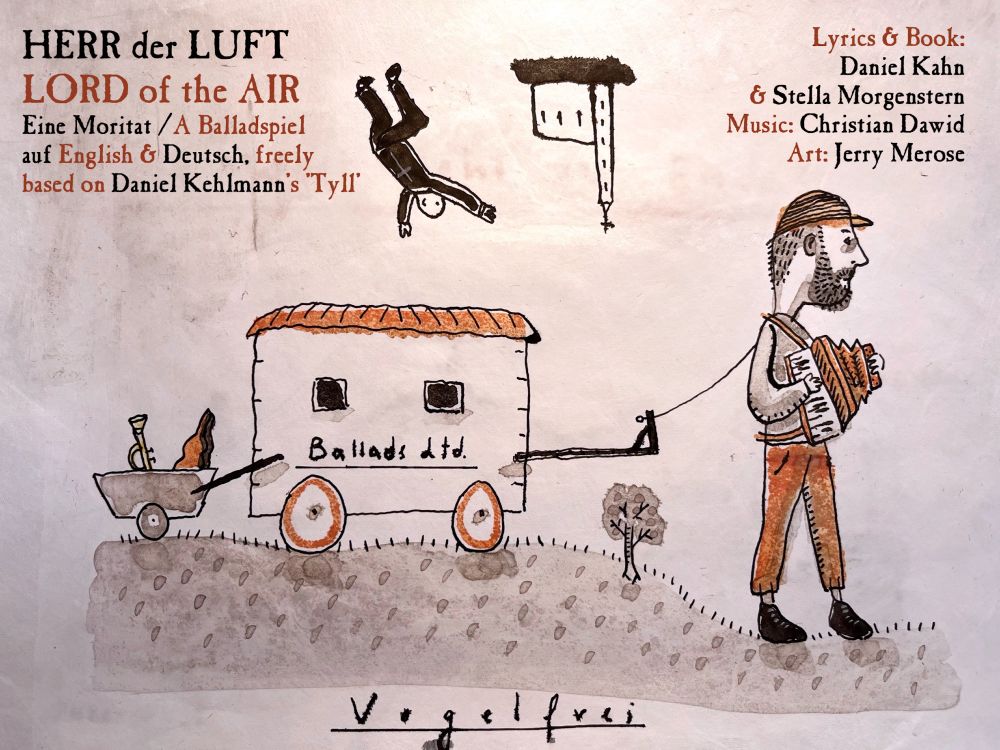 HERR der LUFT
LORD of the AIR
Eine Moritat / A Balladspiel
auf English & Deutsch, freely
based on Daniel Kehlmann's 'Tyll'
Lyrics & Book:
Daniel Kahn
& Stella Morgenstern
Music: Christian Dawid
Art: Jerry Merose
Ballads Ltd.
Vogelfrei